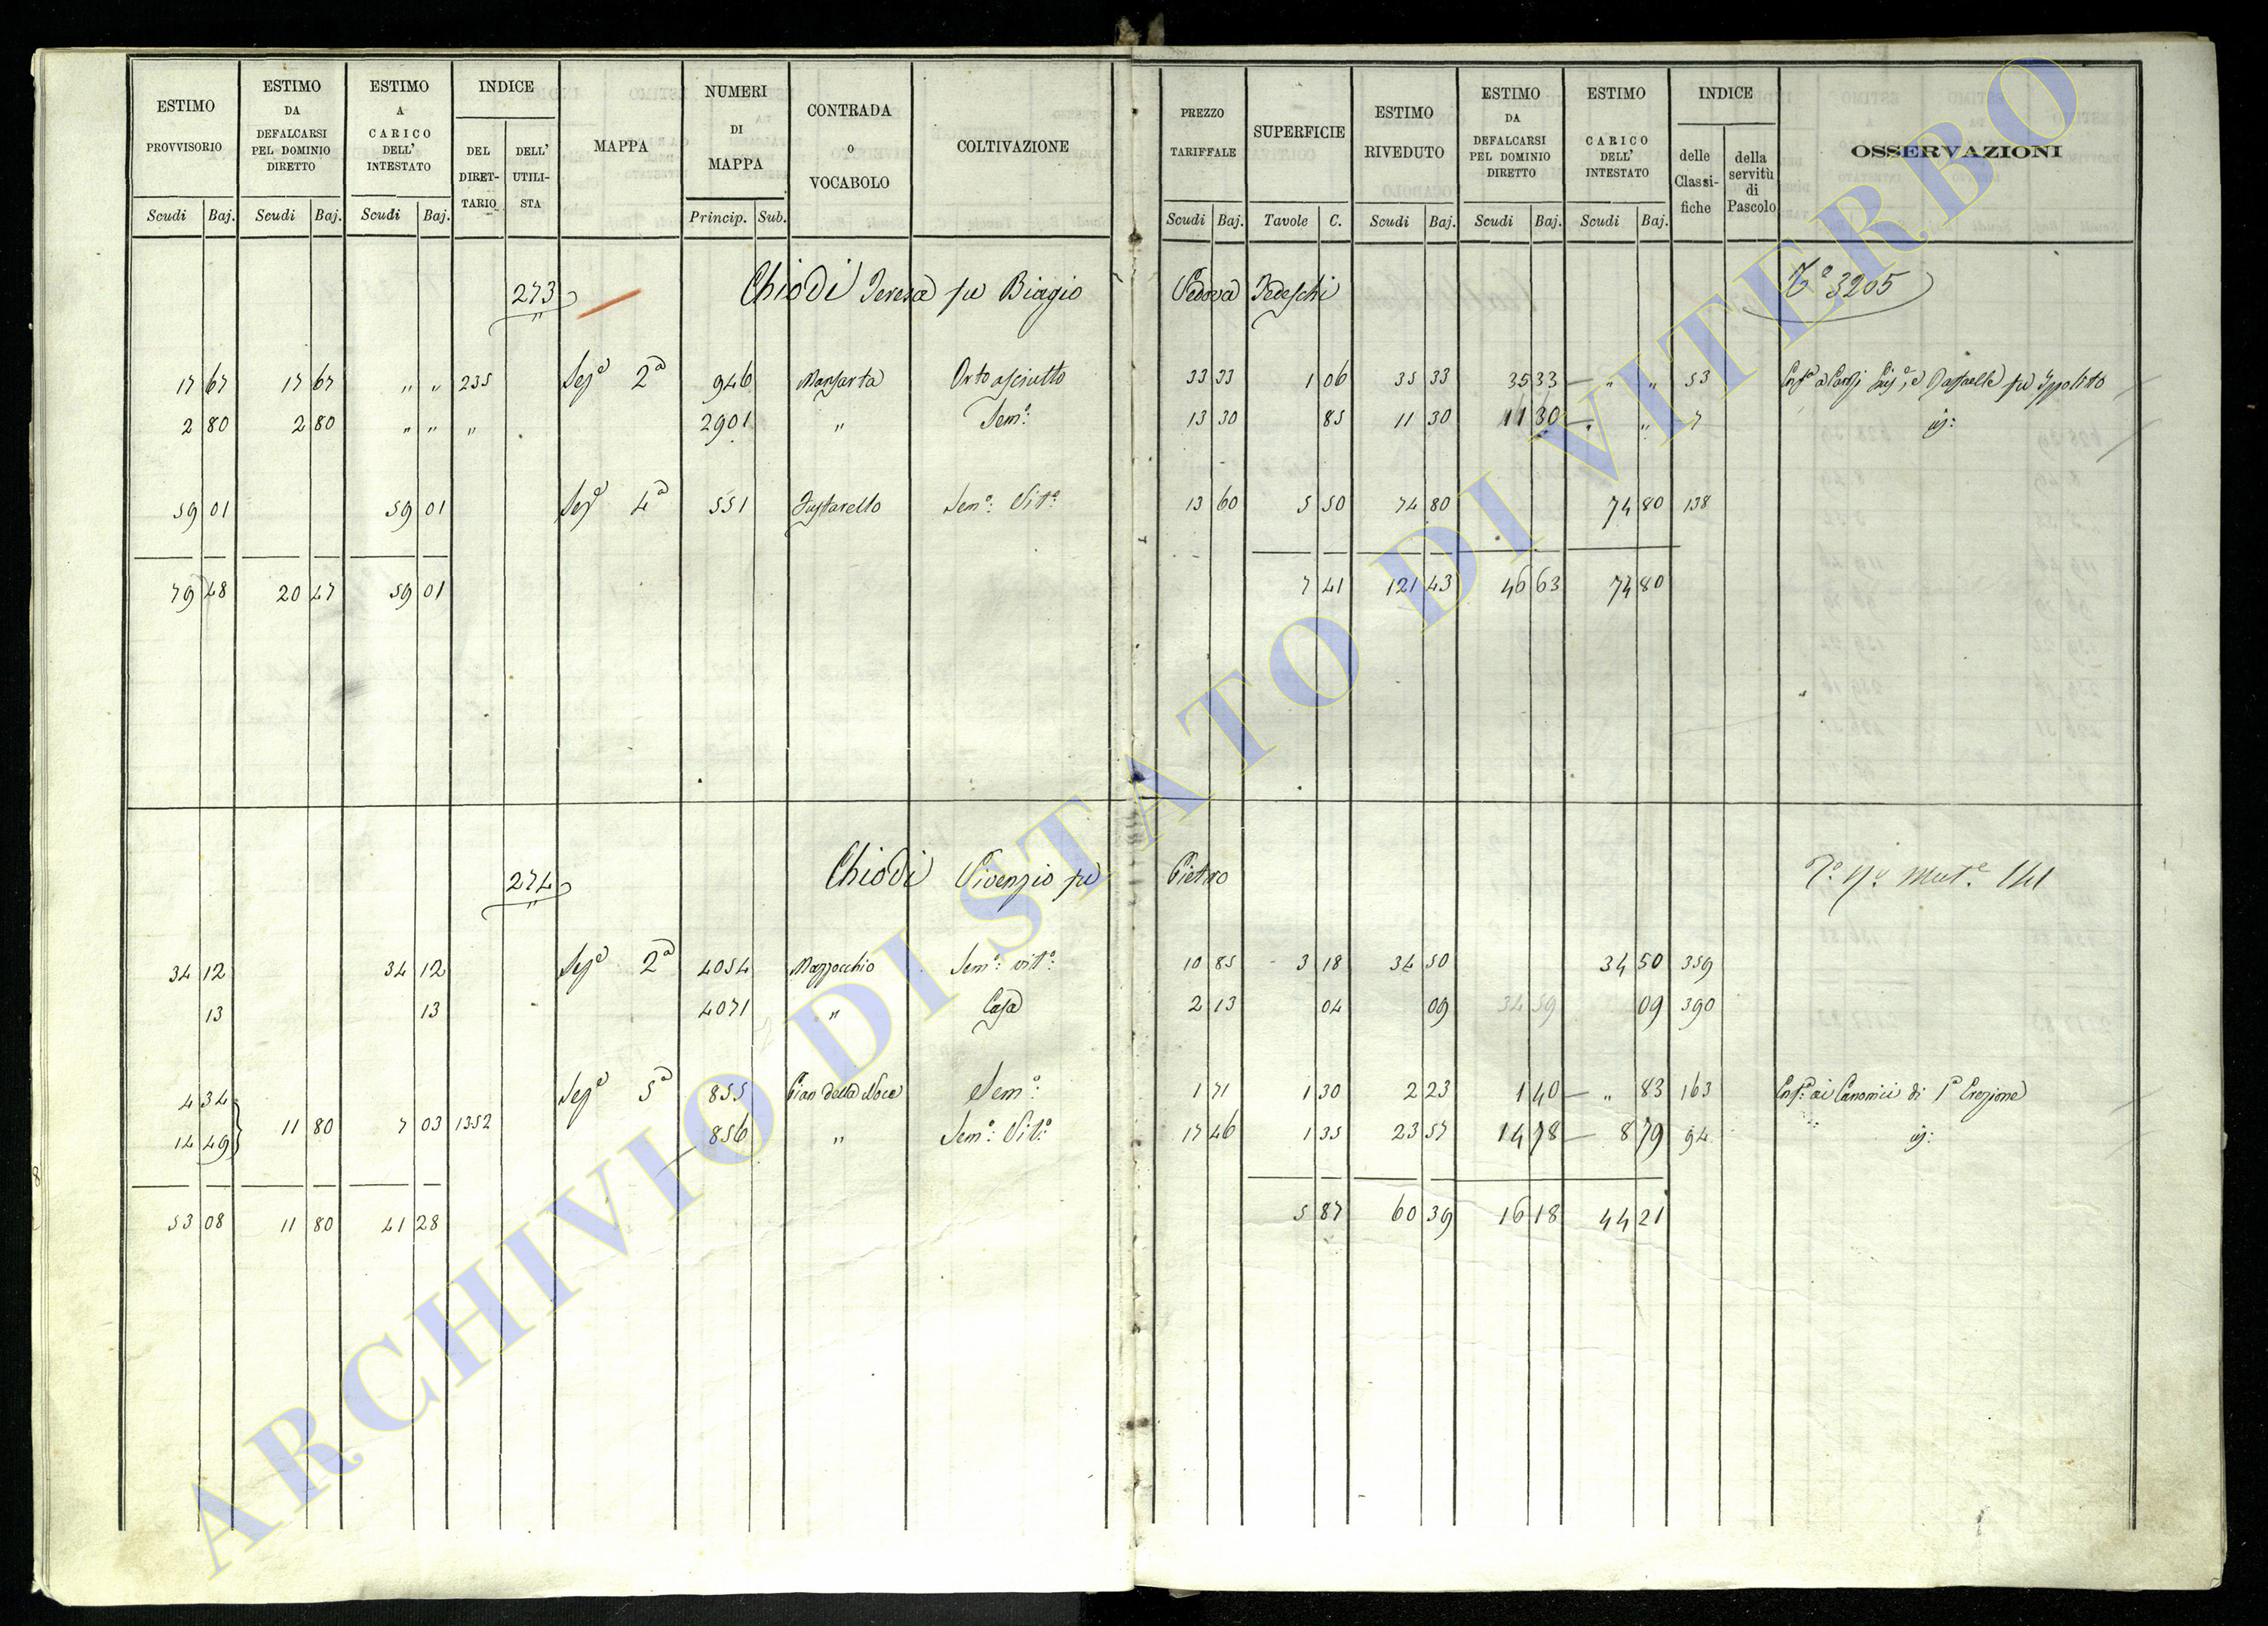 ESTIMO PROVVISORIO Scudi Baj.
ESTIMO DA DEFALCARSI PEL DOMINIO DIRETTO Scudi Baj.
ESTIMO A CARICO DELL' INTESTATO Scudi Baj.
INDICE DEL DIRET-TARIO DELL' UTILI-STA
MAPPA
NUMERI DI MAPPA Princip. Sub.
CONTRADA o VOCABOLO
COLTIVAZIONE
PREZZO TARIFFALE Scudi Baj.
SUPERFICIE Tavole C.
ESTIMO RIVEDUTO Scudi Baj.
ESTIMO DA DEFALCARSI PEL DOMINIO DIRETTO Scudi Baj.
ESTIMO CARICO DELL' INTESTATO Scudi Baj.
INDICE delle Classi-fiche della servitù di Pascolo
OSSERVAZIONI
273 Chiodi Teresa fu Biagio Vedova Tedeschi 3205
17 67 17 67 " " 235 Sez.a 2a 946 Orto asciutto 33 33 1 06 35 33 35 33 — " " 53 fu Ippolito
2 80 2 80 " " " 2901 " Sem.o 13 30 85 11 30 11 30 — " " 7
59 01 59 01 Sez.a 4a 551 Sem.o Vit.o 13 60 5 50 74 80 74 80 138
79 48 20 47 59 01 7 41 121 43 46 63 74 80
274 Chiodi Vivenzio fu Pietro
34 12 34 12 Sez.a 2a 4054 Mazzocchio Sem.o vit.o 10 85 3 18 34 50 34 50 359
13 13 4071 " Casa 2 13 04 09 34 59 09 390
4 34 Sez.a 5a 855 Pian della Noce Sem.o 1 71 1 30 2 23 1 40 — " 83 163 ai Canonici di 1a Erezione
14 49 11 80 7 03 1352 856 " Sem.o Vit.o 17 46 1 35 23 57 14 78 — 8 79 94
53 08 11 80 41 28 5 87 60 39 16 18 44 21
ARCHIVIO DI STATO DI VITERBO